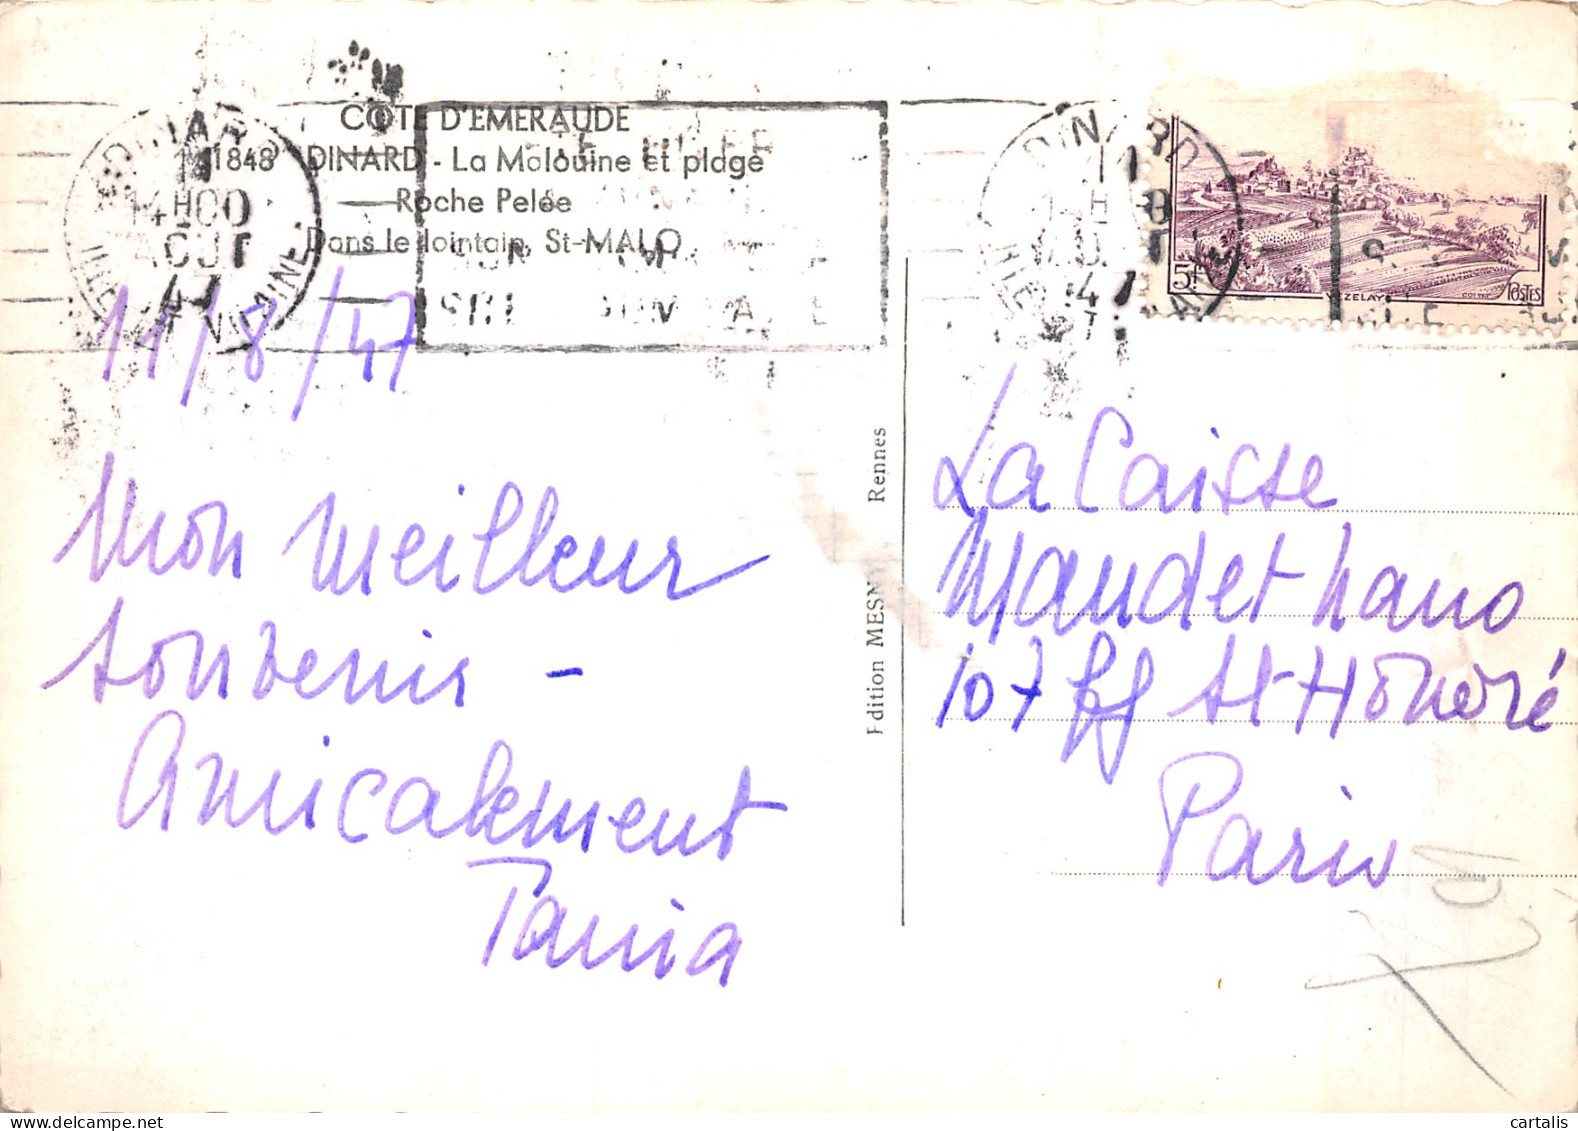 COTE D'EMERAUDE
1848 DINARD - La Malouine et plage
Roche Pelée
Dans le lointain, St-MALO
DINARD
14H00
AOUT
47
ILLE
VILAINE
DINARD
47
5F
VEZELAY
POSTES
11/8/47
Mon meilleur
souvenir -
Amicalement
Tania
Edition MESNY Rennes
La Caisse
Maudet
107 fg St Honoré
Paris
cartalis
delcampe.net